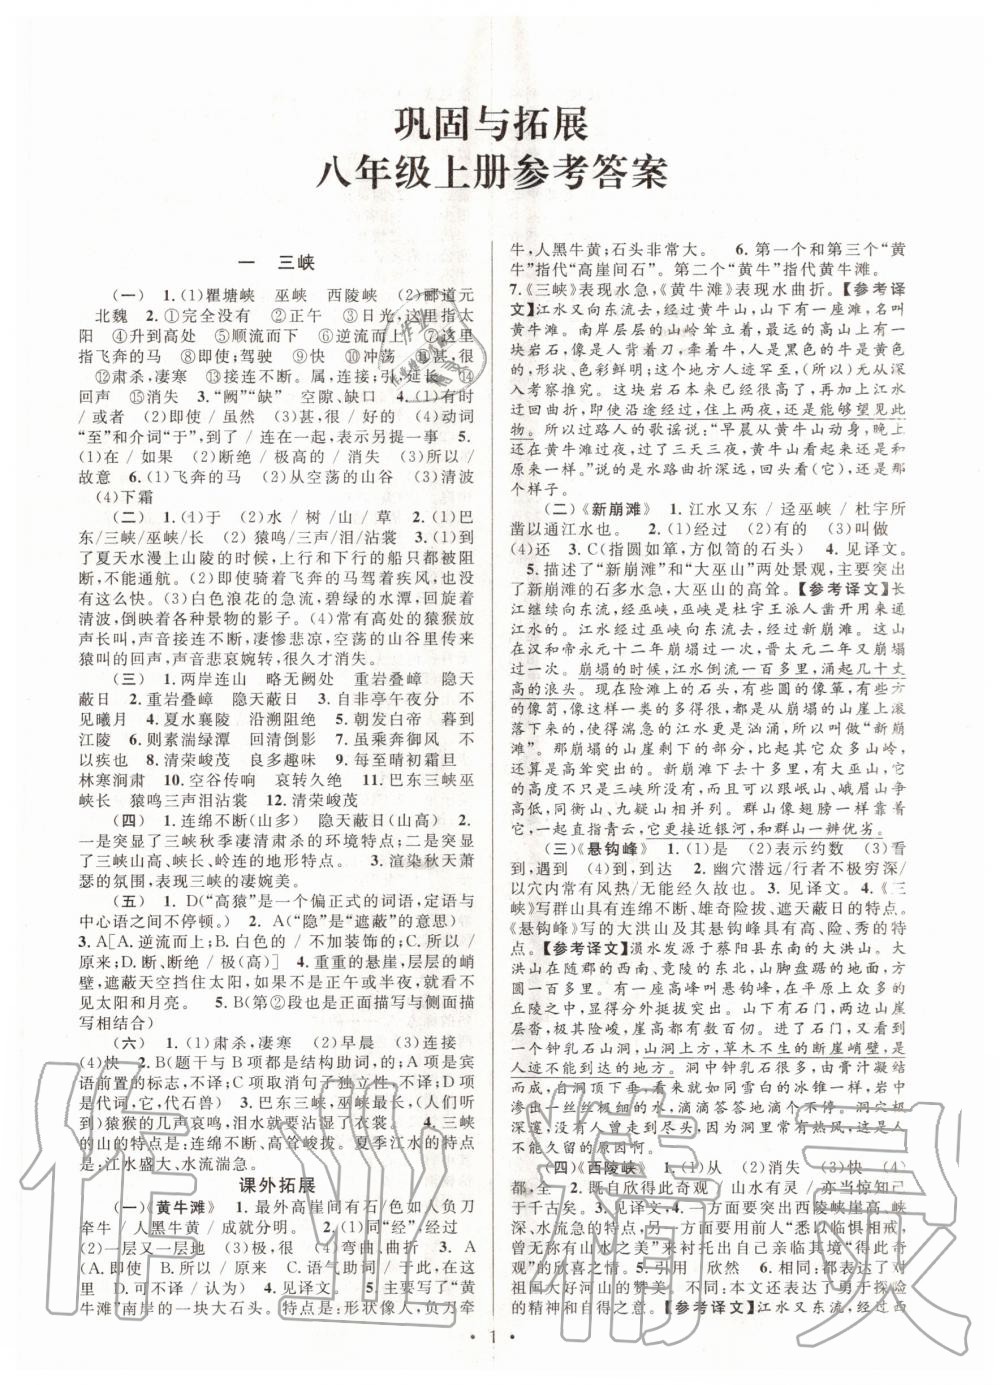 巩固与拓展
八年级上册参考答案
一 三峡
(一) 1.(1)瞿塘峡 巫峡 西陵峡 (2)郦道元
北魏 2.①完全没有 ②正午 ③日光,这里指太
阳 ④升到高处 ⑤顺流而下 ⑥逆流而上 ⑦这里
指飞奔的马 ⑧即使;驾驶 ⑨快 ⑩冲荡 ⑪甚,很
⑫肃杀,凄寒 ⑬接连不断。属,连接;引,延长 ⑭
回声 ⑮消失 3.“阙”“缺” 空隙、缺口 4.(1)有时
/ 或者 (2)即使 / 虽然 (3)甚,很 / 好的 (4)动词
“至”和介词“于”,到了 / 连在一起,表示另提一事 5.
(1)在 / 如果 (2)断绝 / 极高的 / 消失 (3)所以 /
故意 6.(1)飞奔的马 (2)从空荡的山谷 (3)清波
(4)下霜
(二) 1.(1)于 (2)水 / 树 /山 / 草 2.(1)巴
东/三峡/巫峡/长 (2) 猿鸣/三声/泪/沾裳 3.(1)到
了夏天水漫上山陵的时候,上行和下行的船只都被阻
断,不能通航。(2)即使骑着飞奔的马驾着疾风,也没
有这么快。(3)白色浪花的急流,碧绿的水潭,回旋着
清波,倒映着各种景物的影子。(4)常有高处的猿猴放
声长叫,声音接连不断,凄惨悲凉,空荡的山谷里传来
猿叫的回声,声音悲哀婉转,很久才消失。
(三) 1.两岸连山 略无阙处 重岩叠嶂 隐天
蔽日 2.重岩叠嶂 隐天蔽日 3.自非亭午夜分 不
见曦月 4.夏水襄陵 沿溯阻绝 5.朝发白帝 暮到
江陵 6.则素湍绿潭 回清倒影 7.虽乘奔御风 不
以疾也 8.清荣峻茂 良多趣味 9.每至晴初霜旦
林寒涧肃 10.空谷传响 哀转久绝 11.巴东三峡巫
峡长 猿鸣三声泪沾裳 12.清荣峻茂
(四) 1.连绵不断(山多) 隐天蔽日(山高) 2.
一是突显了三峡秋季凄清肃杀的环境特点;二是突显
了三峡山高、峡长、岭连的地形特点。 3.渲染秋天萧
瑟的氛围,表现三峡的凄婉美。
(五) 1. D(“高猿”是一个偏正式的词语,定语与
中心语之间不停顿。) 2. A(“隐”是“遮蔽”的意思)
3.A[A.逆流而上;B.白色的 / 不加装饰的;C.所以 /
原来;D.断、断绝 / 极(高)] 4.重重的悬崖,层层的峭
壁,遮蔽天空挡住太阳,如果不是正午或半夜,就看不
见太阳和月亮。 5. B(第②段也是正面描写与侧面描
写相结合)
(六) 1.(1)肃杀,凄寒 (2)早晨 (3)连接
(4)快 2.B(题干与B项都是结构助词,的;A项是宾
语前置的标志,不译;C取消句子独立性,不译;D项
是代词,它,代石兽) 3.巴东三峡,巫峡最长,(人们听
到)猿猴的几声哀鸣,泪水就要沾湿了衣裳。 4.三峡
的山的特点是:连绵不断、高耸峻拔。夏季江水的特点
是:江水盛大、水流湍急。
课外拓展
(一)《黄牛滩》 1.最外高崖间有石/色如人负刀
牵牛 / 人黑牛黄 / 成就分明。 2.(1)同“经”,经过
(2)一层又一层地 (3)很 (4)弯曲、曲折 3. A
(A.即使 / 既然;B.由于;C.语气助词 / 于此,在这
里 D.可不可译 / 认为) 4.见译文。 5.主要写了“黄
牛滩”南岸的一块大石头。特点是:形状像人,负刀牵
牛,人黑牛黄;石头非常大。 6.第一个和第三个“黄
牛”指代“高崖间石”。第二个“黄牛”指代黄牛滩。
7.《三峡》表现水急,《黄牛滩》表现水曲折。【参考译
文】江水又向东流去,经过黄牛山,下有一座滩,名叫
黄牛滩。南岸层层的山岭耸立着,最远的高山上有一
块岩石,像是人背着刀,牵着牛,人是黑色的牛是黄色
的,形状、色彩鲜明;这个地方人迹罕至,(所以)无从深
入考察推究。这块岩石本来已经很高了,再加上江水
迂回曲折,即使沿途经过,住上两夜,还是能够望见此
物。所以过路人的歌谣说:“早晨从黄牛山动身,晚上
还在黄牛山过夜,过了三天三夜,黄牛山看起来还和
原来一样。”说的是水路曲折深远,回头看(它),还是那
个样子。
(二)《新崩滩》 1.江水又东 / 迳巫峡 / 杜宇所
凿以通江水也。 2.(1)经过 (2)有的 (3)叫做
(4)还 3.C(指圆如箪,方似笥的石头) 4.见译文。
5.描述了“新崩滩”和“大巫山”两处景观,主要突出
了新崩滩的石多水急,大巫山的高耸。【参考译文】长
江继续向东流,经巫峡,巫峡是杜宇王派人凿开用来通
江水的。江水经过巫峡向东流去,经过新崩滩。这山
在汉和帝永元十二年崩塌过一次,晋太元二年又崩塌
过一次。崩塌的时候,江水倒流一百多里,涌起几十丈
高的浪头。现在险滩上的石头,有些圆的像箪,有些方
的像笥,像这样一类的多得很,都是从崩塌的山崖上滚
落下来的,使得湍急的江水更是汹涌,所以叫做“新崩
滩”。那崩塌的山崖剩下的部分,比起其它众多山岭,
还算是高耸突出的。新崩滩下去十多里,有大巫山,它
的高度不只是三峡所没有的,还可以跟岷山、峨嵋山争
高低,同衡山、九疑山相并列。群山像翅膀一样靠着
它,一起直指青云,它更接近银河,和群山一辨优劣。
(三)《悬钩峰》 1.(1)是 (2)表示约数 (3)看
到,遇到 (4)到,到达 2.幽穴潜远/行者不极穷深/
以穴内常有风热/无能经久故也。 3.见译文。 4.《三
峡》写群山具有连绵不断、雄奇险拔、遮天蔽日的特点。
《悬钩峰》写的大洪山及其悬钩峰具有高、险、秀的特
点。【参考译文】涢水发源于蔡阳县东南的大洪山。大
洪山在随郡的西南、竟陵的东北,山脚盘踞的地方,一
百多里。有一座高峰叫悬钩峰,在平原上众多高大的
丘陵之中,显得分外挺拔突出。山下有石门,两边山崖
层沓,极其险峻,崖高都有数百仞。进了石门,又看到
一个钟乳石山洞,山洞上高耸,草木不生的断崖峭壁,是
人迹不能到达的地方。洞里钟乳石很多,由膏汁凝结
而成,自洞顶下垂,看来就如同雪白的冰锥一样,岩中
渗出一丝丝极细的水,滴滴答答地滴个不停。洞穴极
深邃,没有人曾走到尽头,因为洞里常有热风,是人不
能久留的原因啊。
(四)《西陵峡》 1.(1)从 (2)消失 (3)快 (4)
都,全 2.既自欣得此奇观 / 山水有灵 / 亦当惊知己
于千古矣。 3.见译文。4.一方面突出西陵峡水急、峡
深、水流急的特点,另一方面要用前人“悉以临惧相戒,
曾无称有山水之美”来衬托出自己亲临其境的对此奇
观的欣喜之情。 5.引用 欣然 6.相同:都表达了对
祖国大好河山的赞美。不同:本文还表达了勇于探险
的精神和自得之意。【参考译文】江水又东流,经过西
· 1 ·
作业精灵